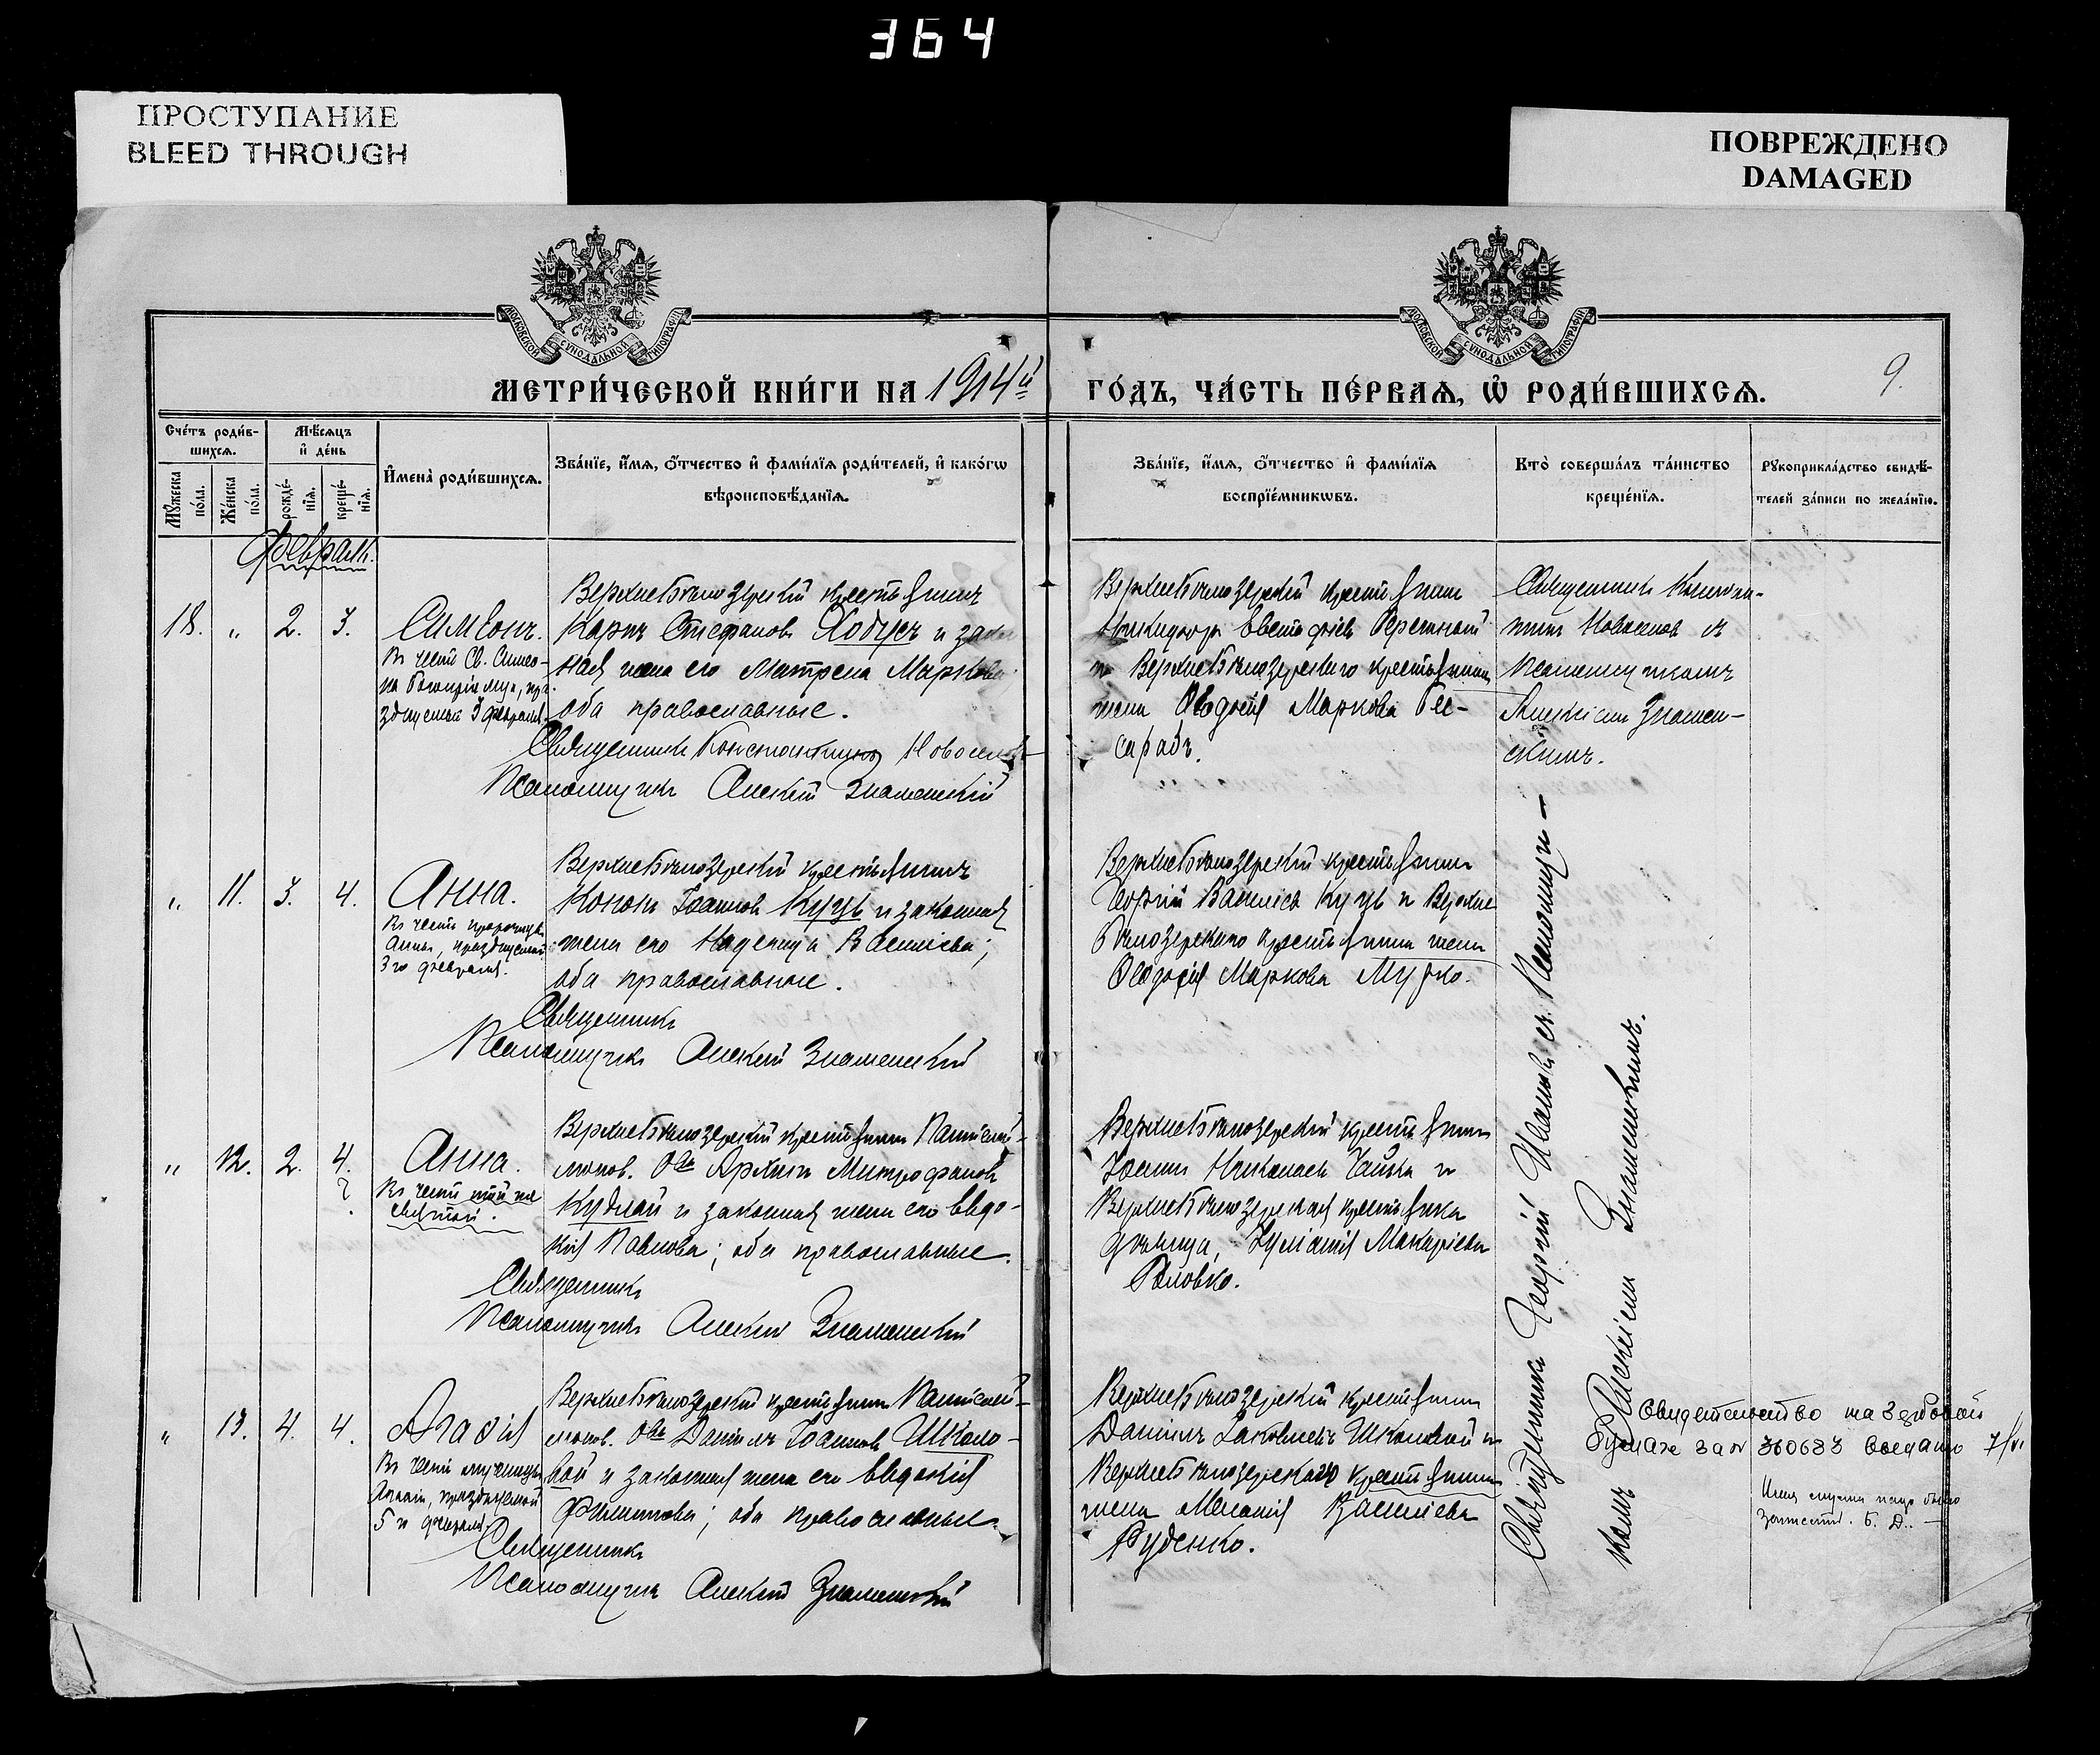 364
ПРОСТУПАНИЕ
BLEED THROUGH
ПОВРЕЖДЕНО
DAMAGED
МОСКОВСКОЙ СУНОДАЛЬНОЙ ТИПОГРАФІИ
МОСКОВСКОЙ СУНОДАЛЬНОЙ ТИПОГРАФІИ
МЕТРИ́ЧЕСКОЙ КНИ́ГИ НА 1914й
ГО́ДЪ, ЧА́СТЬ ПЕ́РВАѦ, Ѡ҆ РОДИ́ВШИХСѦ.
9.
Сче́тъ роди́в-
шихсѧ.
Мѣ́сѧцъ
и҆ де́нь
Мꙋ́жеска
по́ла.
Же́нска
по́ла.
рожде́-
нїѧ.
креще́-
нїѧ.
И҆мена̀ роди́вшихсѧ.
Зва́нїе, и҆́мѧ, ѻ҆́тчество и҆ фами́лїѧ роди́телей, и҆ како́гѡ
вѣроисповѣ́данїѧ.
Зва́нїе, и҆́мѧ, ѻ҆́тчество и҆ фами́лїѧ
воспрїе́мникѡвъ.
Кто̀ соверша́лъ та́инство
креще́нїѧ.
Рꙋкоприкла́дство свидѣ́-
телей за́писи по жела́нїю.
Февраль.
18. „ 2. 3.
Симеонъ.
Въ честь Св. Симео-
на Богопріимца, пра-
зднуемый 3 февраля.
Верхнебѣлозерскій крестьянинъ
Карпъ Стефановъ Ходусъ и закон
ная жена его Матрена Маркова
оба православные.
Священникъ Константинъ Новоселов
Псаломщикъ Алексій Знаменскій
Верхнебѣлозерскій крестьянинъ
Евстафіевъ
Верхнебѣлозерскаго крестьянина
жена Евдокія Маркова Бес-
сарабъ.
Священникъ Констан-
тинъ Новоселов съ
псаломщикомъ
Алексіемъ Знамен-
скимъ.
„ 11. 3. 4.
Анна.
Въ честь пророчицы
Анны, празднуемой
3го февраля.
Верхнебѣлозерскій крестьянинъ
Кононъ Іоанновъ Куцъ и законная
жена его Надежда Васильева;
оба православные.
Священникъ
Псаломщикъ Алексій Знаменскій
Верхнебѣлозерскій крестьянинъ
Георгій Василіевъ Куцъ и Верхне
бѣлозерскаго крестьянина жена
Евдокія Маркова Мурко.
„ 12. 2. 4.
?
Анна.
Въ честь той же
святой.
Верхнебѣлозерскій крестьянинъ Пантелей-
монов. Об-ва Архипъ Митрофановъ
Кудлай и законная жена его Евдо-
кія Павлова; оба православные.
Священникъ
Псаломщикъ Алексій Знаменскій
Верхнебѣлозерскій крестьянинъ
Іоаннъ Николаевъ Чайка и
Верхнебѣлозерская крестьянка
дѣвица, Іуліанія Макаріева
Головко.
„ 13. 4. 4.
Агафія
Въ честь мученицы
Агафіи, празднуемой
5 го февраля.
Верхнебѣлозерскій крестьянинъ Пантелей-
монов. Об-ва Даніилъ Іоанновъ Школо-
вой и законная жена его Евдокія
Филиппова; оба православные.
Священникъ
Псаломщикъ Алексій Знаменскій
Верхнебѣлозерскій крестьянинъ
Даніилъ Іаковлевъ Школовой и
Верхнебѣлозерскаго крестьянина
жена Меланія Василіева
Руденко.
Священникъ Георгій Ивановъ съ Псаломщи-
комъ Алексіемъ Знаменскимъ.
Свидетельство на гербовой
бумаге за № 360683 выдано 7/VI